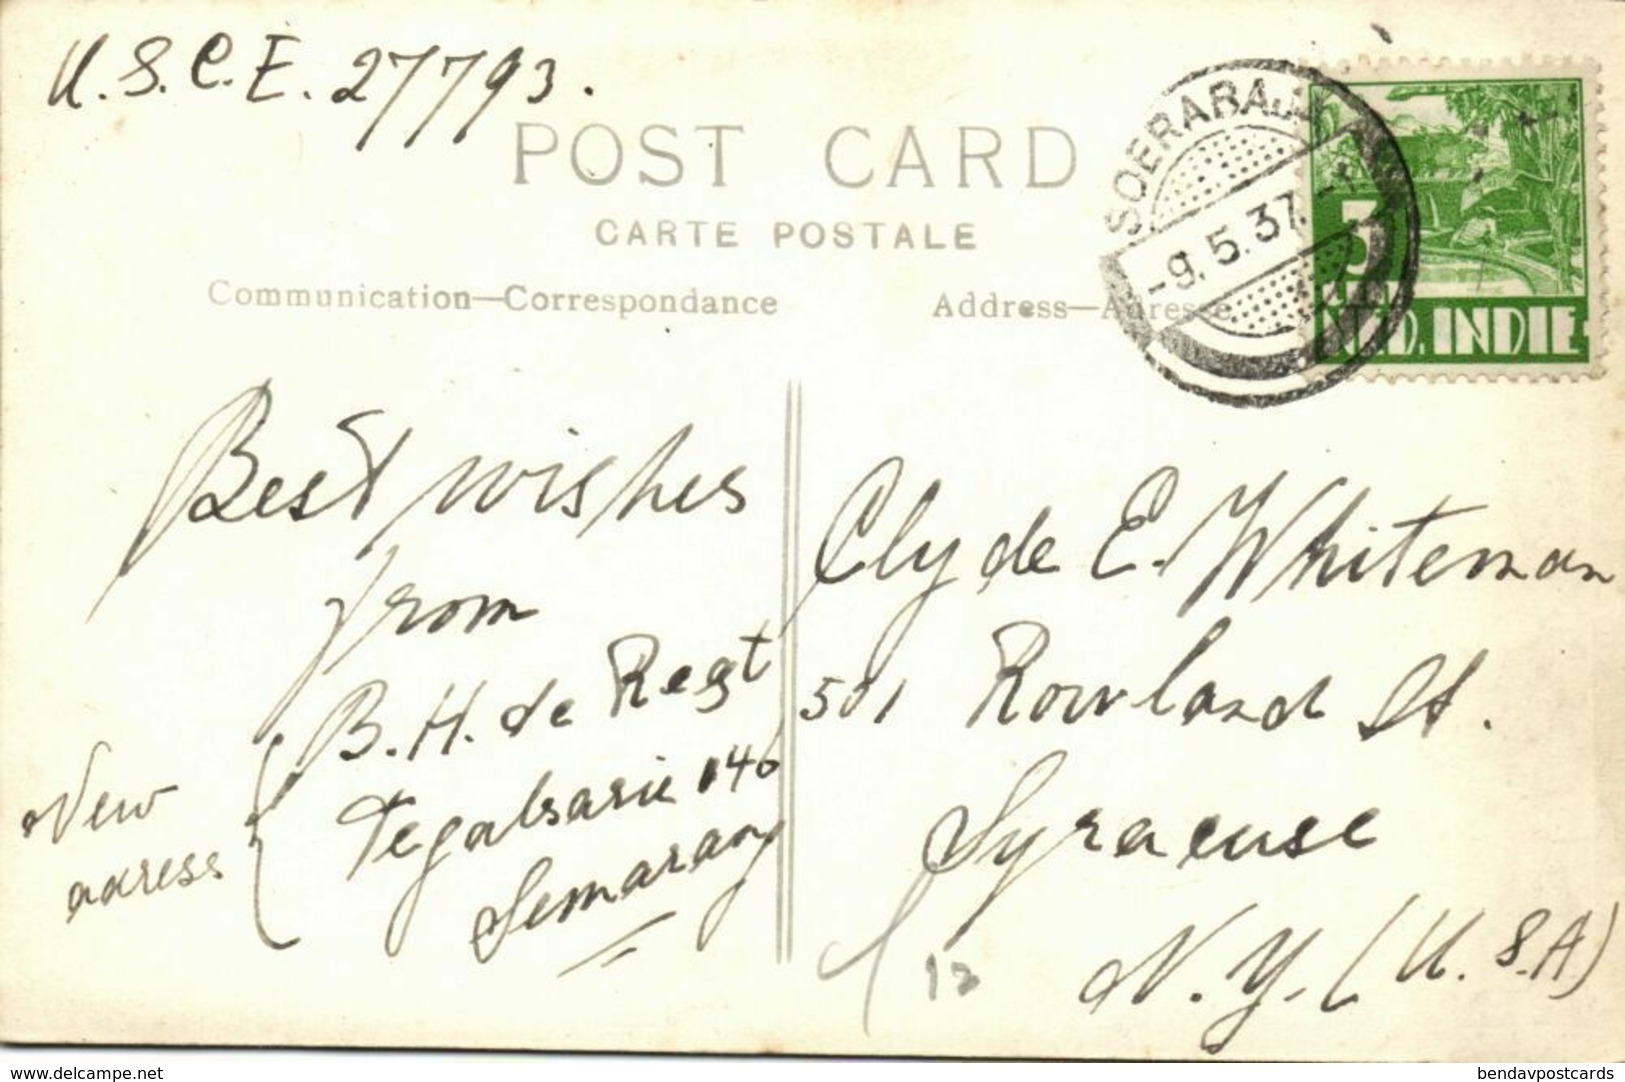 U.S.C.E. 27793.
POST CARD
CARTE POSTALE
Communication—Correspondance
Address—Adresse
SOERABAJA
-9.5.37.
3
CENT
NED. INDIE
Best wishes
from
B.H. de Regt
Tegalsarie 140
Semarang
New
adress
Clyde E. Whiteman
501 Rowland St.
Syracuse
N.Y. (U.S.A)
12
delcampe.net
bendavpostcards